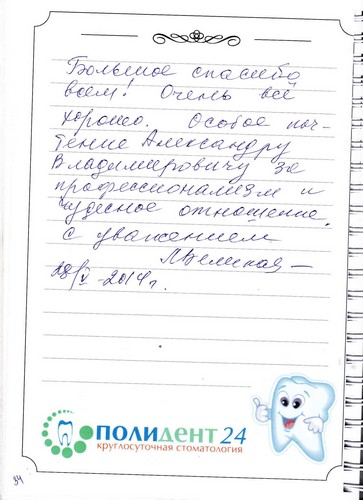 Большое спасибо
всем! Очень всё
хорошо. Особое поч-
тение Александру
Владимировичу за
профессионализм и
чудесное отношение.
с уважением
18/V-2014г.
ПОЛИДЕНТ 24
круглосуточная стоматология